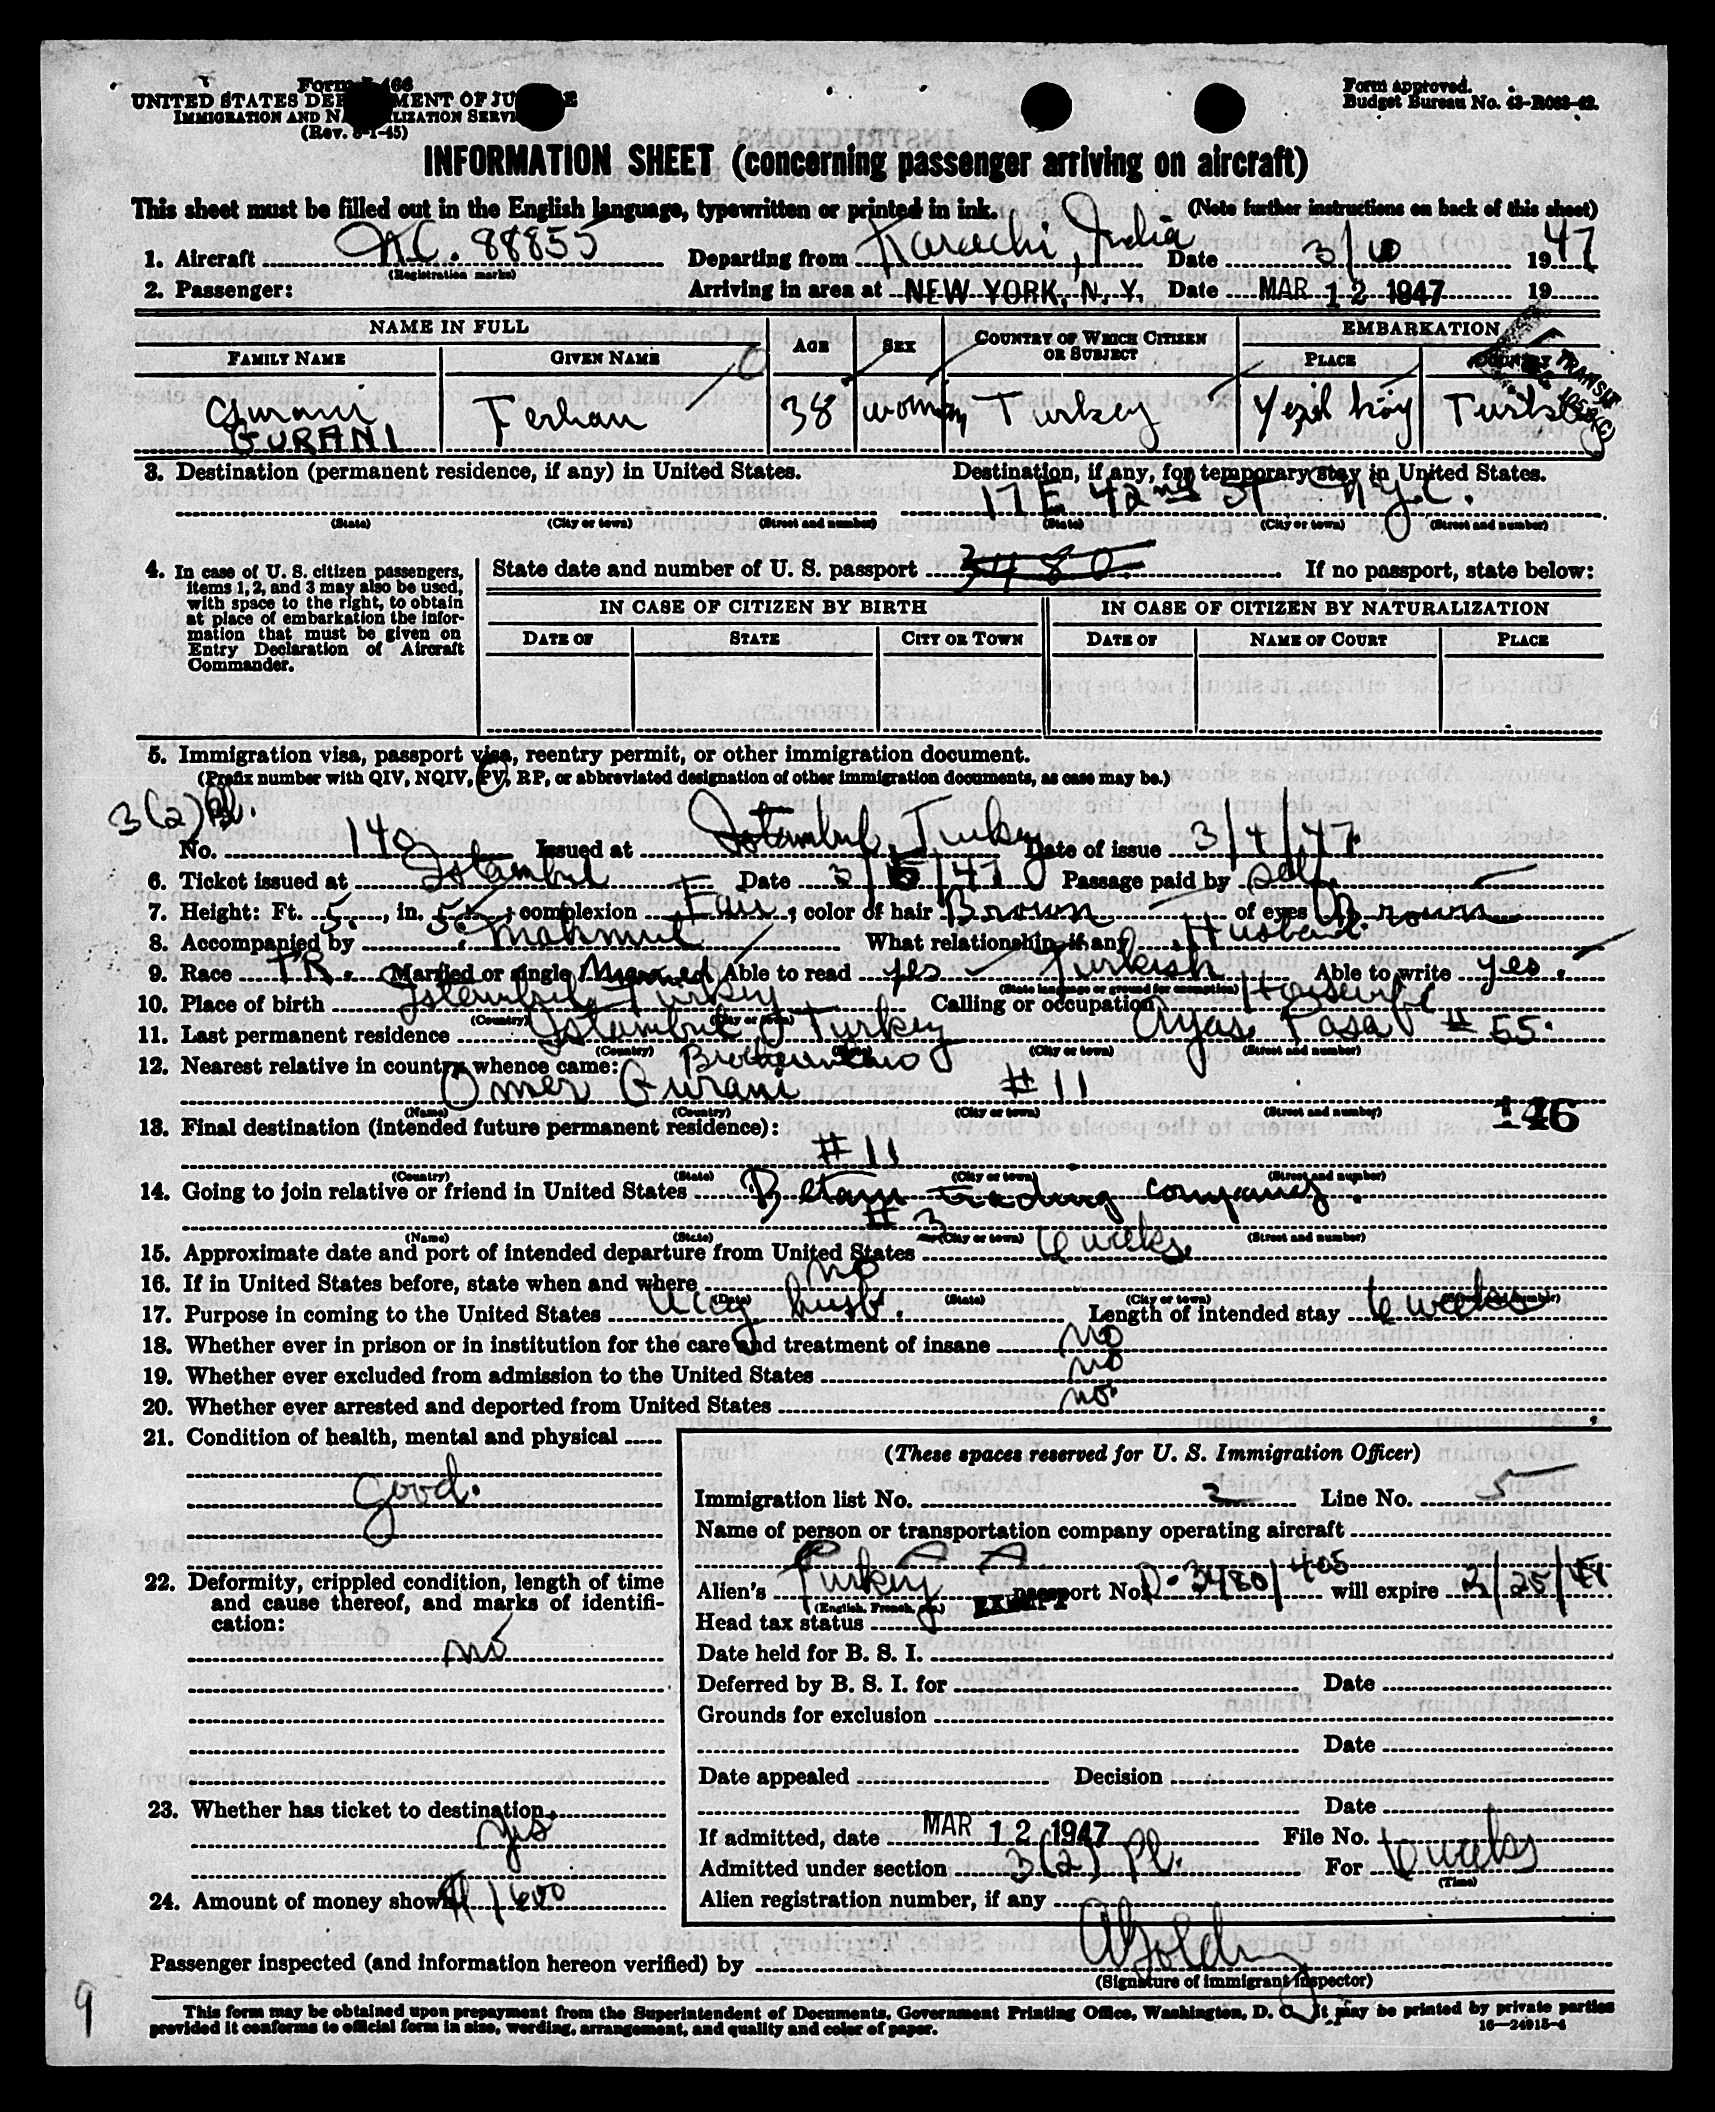 Form I-466
UNITED STATES DEPARTMENT OF JUSTICE
IMMIGRATION AND NATURALIZATION SERVICE
(Rev. 3-1-45)
Form approved.
Budget Bureau No. 43-R063-42.
INFORMATION SHEET (concerning passenger arriving on aircraft)
This sheet must be filled out in the English language, typewritten or printed in ink. (Note further instructions on back of this sheet)
1. Aircraft N.C. 88855 Departing from Karachi, India Date 3/10 1947
(Registration marks)
2. Passenger: Arriving in area at NEW YORK, N. Y. Date MAR 12 1947 19
NAME IN FULL AGE SEX COUNTRY OF WHICH CITIZEN OR SUBJECT EMBARKATION
FAMILY NAME GIVEN NAME PLACE COUNTRY
TRANSIT
Gurani Ferhan 38 woman Turkey Yezil köy Turkey
GURANI
3. Destination (permanent residence, if any) in United States. Destination, if any, for temporary stay in United States.
17 E 42nd St N.Y.C.
(State) (City or town) (Street and number) (State) (City or town) (Street and number)
4. In case of U. S. citizen passengers, items 1, 2, and 3 may also be used, with space to the right, to obtain at place of embarkation the information that must be given on Entry Declaration of Aircraft Commander.
State date and number of U. S. passport 3480. If no passport, state below:
IN CASE OF CITIZEN BY BIRTH IN CASE OF CITIZEN BY NATURALIZATION
DATE OF STATE CITY OR TOWN DATE OF NAME OF COURT PLACE
5. Immigration visa, passport visa, reentry permit, or other immigration document.
(Prefix number with QIV, NQIV, PV, RP, or abbreviated designation of other immigration documents, as case may be.)
3(2) Pl.
No. 140 Issued at Istanbul, Turkey Date of issue 3/4/47
6. Ticket issued at Istanbul Date 3/5/47 Passage paid by self
7. Height: Ft. 5, in. 5; complexion Fair; color of hair Brown of eyes Brown
8. Accompanied by Mahmut What relationship, if any Husband
9. Race TR. Married or single Married Able to read yes Turkish Able to write yes.
(State language or ground for exemption)
10. Place of birth Istanbul, Turkey Calling or occupation Housewife
(Country) (City or town)
11. Last permanent residence Istanbul, Turkey Ayas Pasa # 55.
(Country) (State) (City or town) (Street and number)
12. Nearest relative in country whence came: Brother in law
Omer Gurani #11
(Name) (Country) (City or town) (Street and number)
146
13. Final destination (intended future permanent residence):
#11
(Country) (State) (City or town) (Street and number)
14. Going to join relative or friend in United States trading company.
#3
(Name) (State) (City or town) (Street and number)
15. Approximate date and port of intended departure from United States 6 weeks
16. If in United States before, state when and where no
(Date) (State) (City or town) (Street and number)
17. Purpose in coming to the United States accy husb. Length of intended stay 6 weeks
18. Whether ever in prison or in institution for the care and treatment of insane no
19. Whether ever excluded from admission to the United States no
20. Whether ever arrested and deported from United States no.
21. Condition of health, mental and physical
good.
22. Deformity, crippled condition, length of time and cause thereof, and marks of identification:
no
23. Whether has ticket to destination
yes
24. Amount of money shown $1600
(These spaces reserved for U. S. Immigration Officer)
Immigration list No. 2 Line No. 5
Name of person or transportation company operating aircraft
P A A
Alien's Turkey passport No. D-3480/405 will expire 2/25/49
(English, French, etc.)
EXEMPT
Head tax status
Date held for B. S. I.
Deferred by B. S. I. for Date
Grounds for exclusion
Date
Date appealed Decision
Date
If admitted, date MAR 12 1947 File No.
Admitted under section 3(2) Pl. For 6 weeks
(Time)
Alien registration number, if any
Passenger inspected (and information hereon verified) by
(Signature of immigrant inspector)
9
This form may be obtained upon prepayment from the Superintendent of Documents, Government Printing Office, Washington, D. C. It may be printed by private parties
provided it conforms to official form in size, wording, arrangement, and quality and color of paper.
16—24915-4